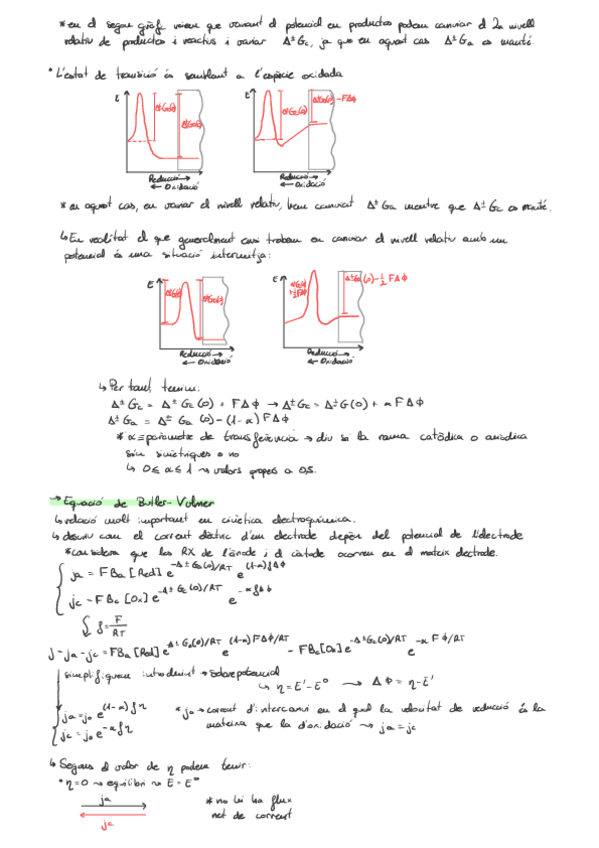 * en el segon gràfic veiem que variant el potencial en productes podem canviar el 2n nivell
relatiu de productes i reactius i variar Δ‡Gc, ja que en aquest cas Δ‡Ga es manté.
* L'estat de transició és semblant a l'espècie oxidada
E Δ‡Gc(0) Δ‡Ga(0)
E Δ‡Gc(0) Δ‡Ga(0) - FΔΦ
Reducció → Reducció →
← Oxidació ← Oxidació
* en aquest cas, en variar el nivell relatiu, hem canviat Δ‡Ga mentre que Δ‡Gc es manté.
↳ En realitat el que generalment ens trobem en canviar el nivell relatiu amb un
potencial és una situació intermitja:
E Δ‡Gc(0) Δ‡Ga(0)
E Δ‡Gc(0) + ½FΔΦ Δ‡Ga(0) - ½ FΔΦ
Reducció → Reducció →
← Oxidació ← Oxidació
↳ Per tant, tenim:
Δ‡Gc = Δ‡Gc(0) = FΔΦ → Δ‡Gc = Δ‡G(0) + α FΔΦ
Δ‡Ga = Δ‡Ga(0) - (1-α) FΔΦ
* α = paràmetre de transferència → diu si la rama catòdica o anòdica
són simètriques o no
↳ 0 ≤ α ≤ 1 → valors propers a 0,5.
→ Equació de Butler-Volmer
↳ relació molt important en cinètica electroquímica.
↳ descriu com el corrent elèctric d'un elèctrode depèn del potencial de l'elèctrode
* considera que les RX de l'ànode i el càtode ocorren en el mateix elèctrode.
ja = F Ba [Red] e^(-Δ‡Ga(0)/RT) e^((1-α)fΔΦ)
jc = F Bc [Ox] e^(-Δ‡Gc(0)/RT) e^(-αfΔΦ)
f = F/RT
j = ja - jc = F Ba [Red] e^(-Δ‡Ga(0)/RT) e^((1-α)FΔΦ/RT) - F Bc [Ox] e^(-Δ‡Gc(0)/RT) e^(-αFΦ/RT)
simplifiquem introduint → Sobrepotencial
↳ η = E' - E° → ΔΦ = η - E'
ja = j₀ e^((1-α)fη) * j₀ → corrent d'intercanvi en el qual la velocitat de reducció és la
jc = j₀ e^(-αfη) mateixa que la d'oxidació → ja = jc
↳ Segons el valor de η podem tenir:
* η = 0 → equilibri → E = E°
ja * no hi ha flux
jc net de corrent